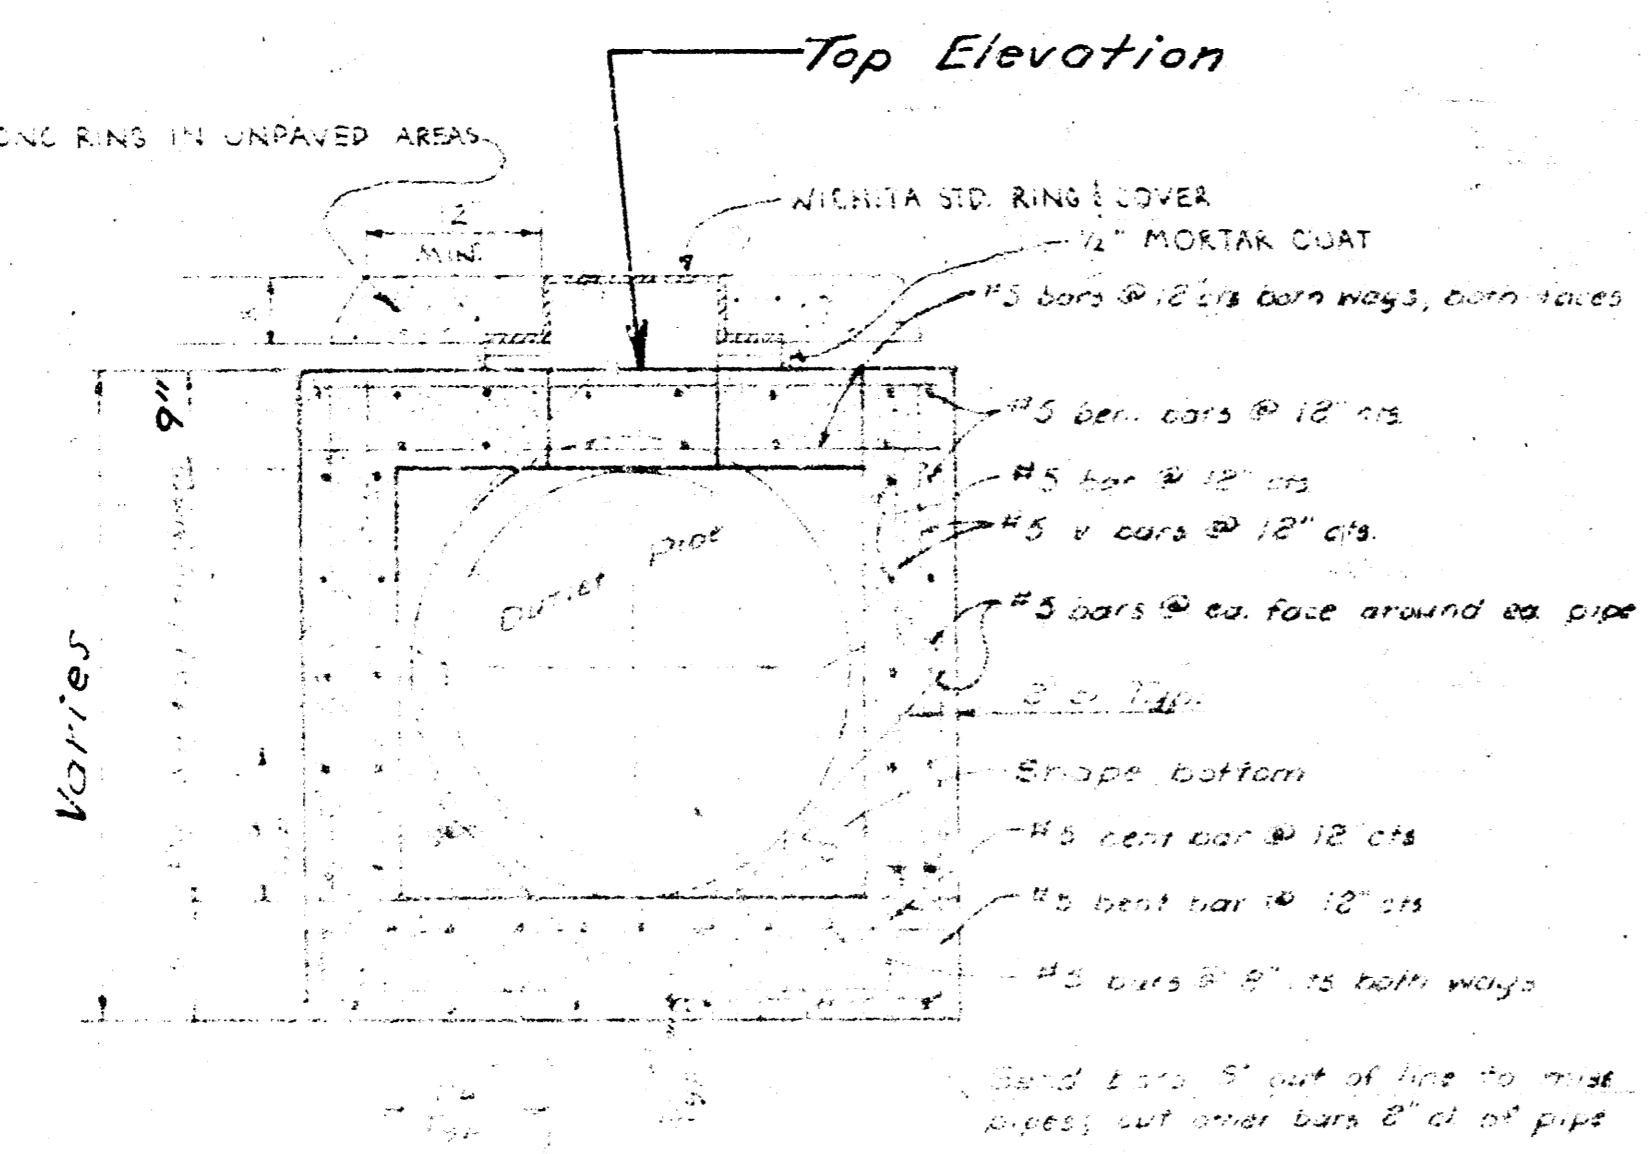 Top Elevation
CONC RING IN UNPAVED AREAS
12"
MIN.
WICHITA STD. RING & COVER
1/2" MORTAR COAT
#5 bars @ 12" cts both ways, both faces
8"
9"
#5 bent bars @ 12" cts.
#5 bar @ 12" cts
#5 v bars @ 12" cts.
Outlet pipe
#5 bars @ ea. face around ea. pipe
Varies
2" cl. Typ.
Shape bottom
#5 bent bar @ 12" cts
#5 bent bar @ 12" cts
#5 bars @ 8" cts both ways
Bend bars 8" out of line to miss
pipes; cut other bars 2" cl. of pipe